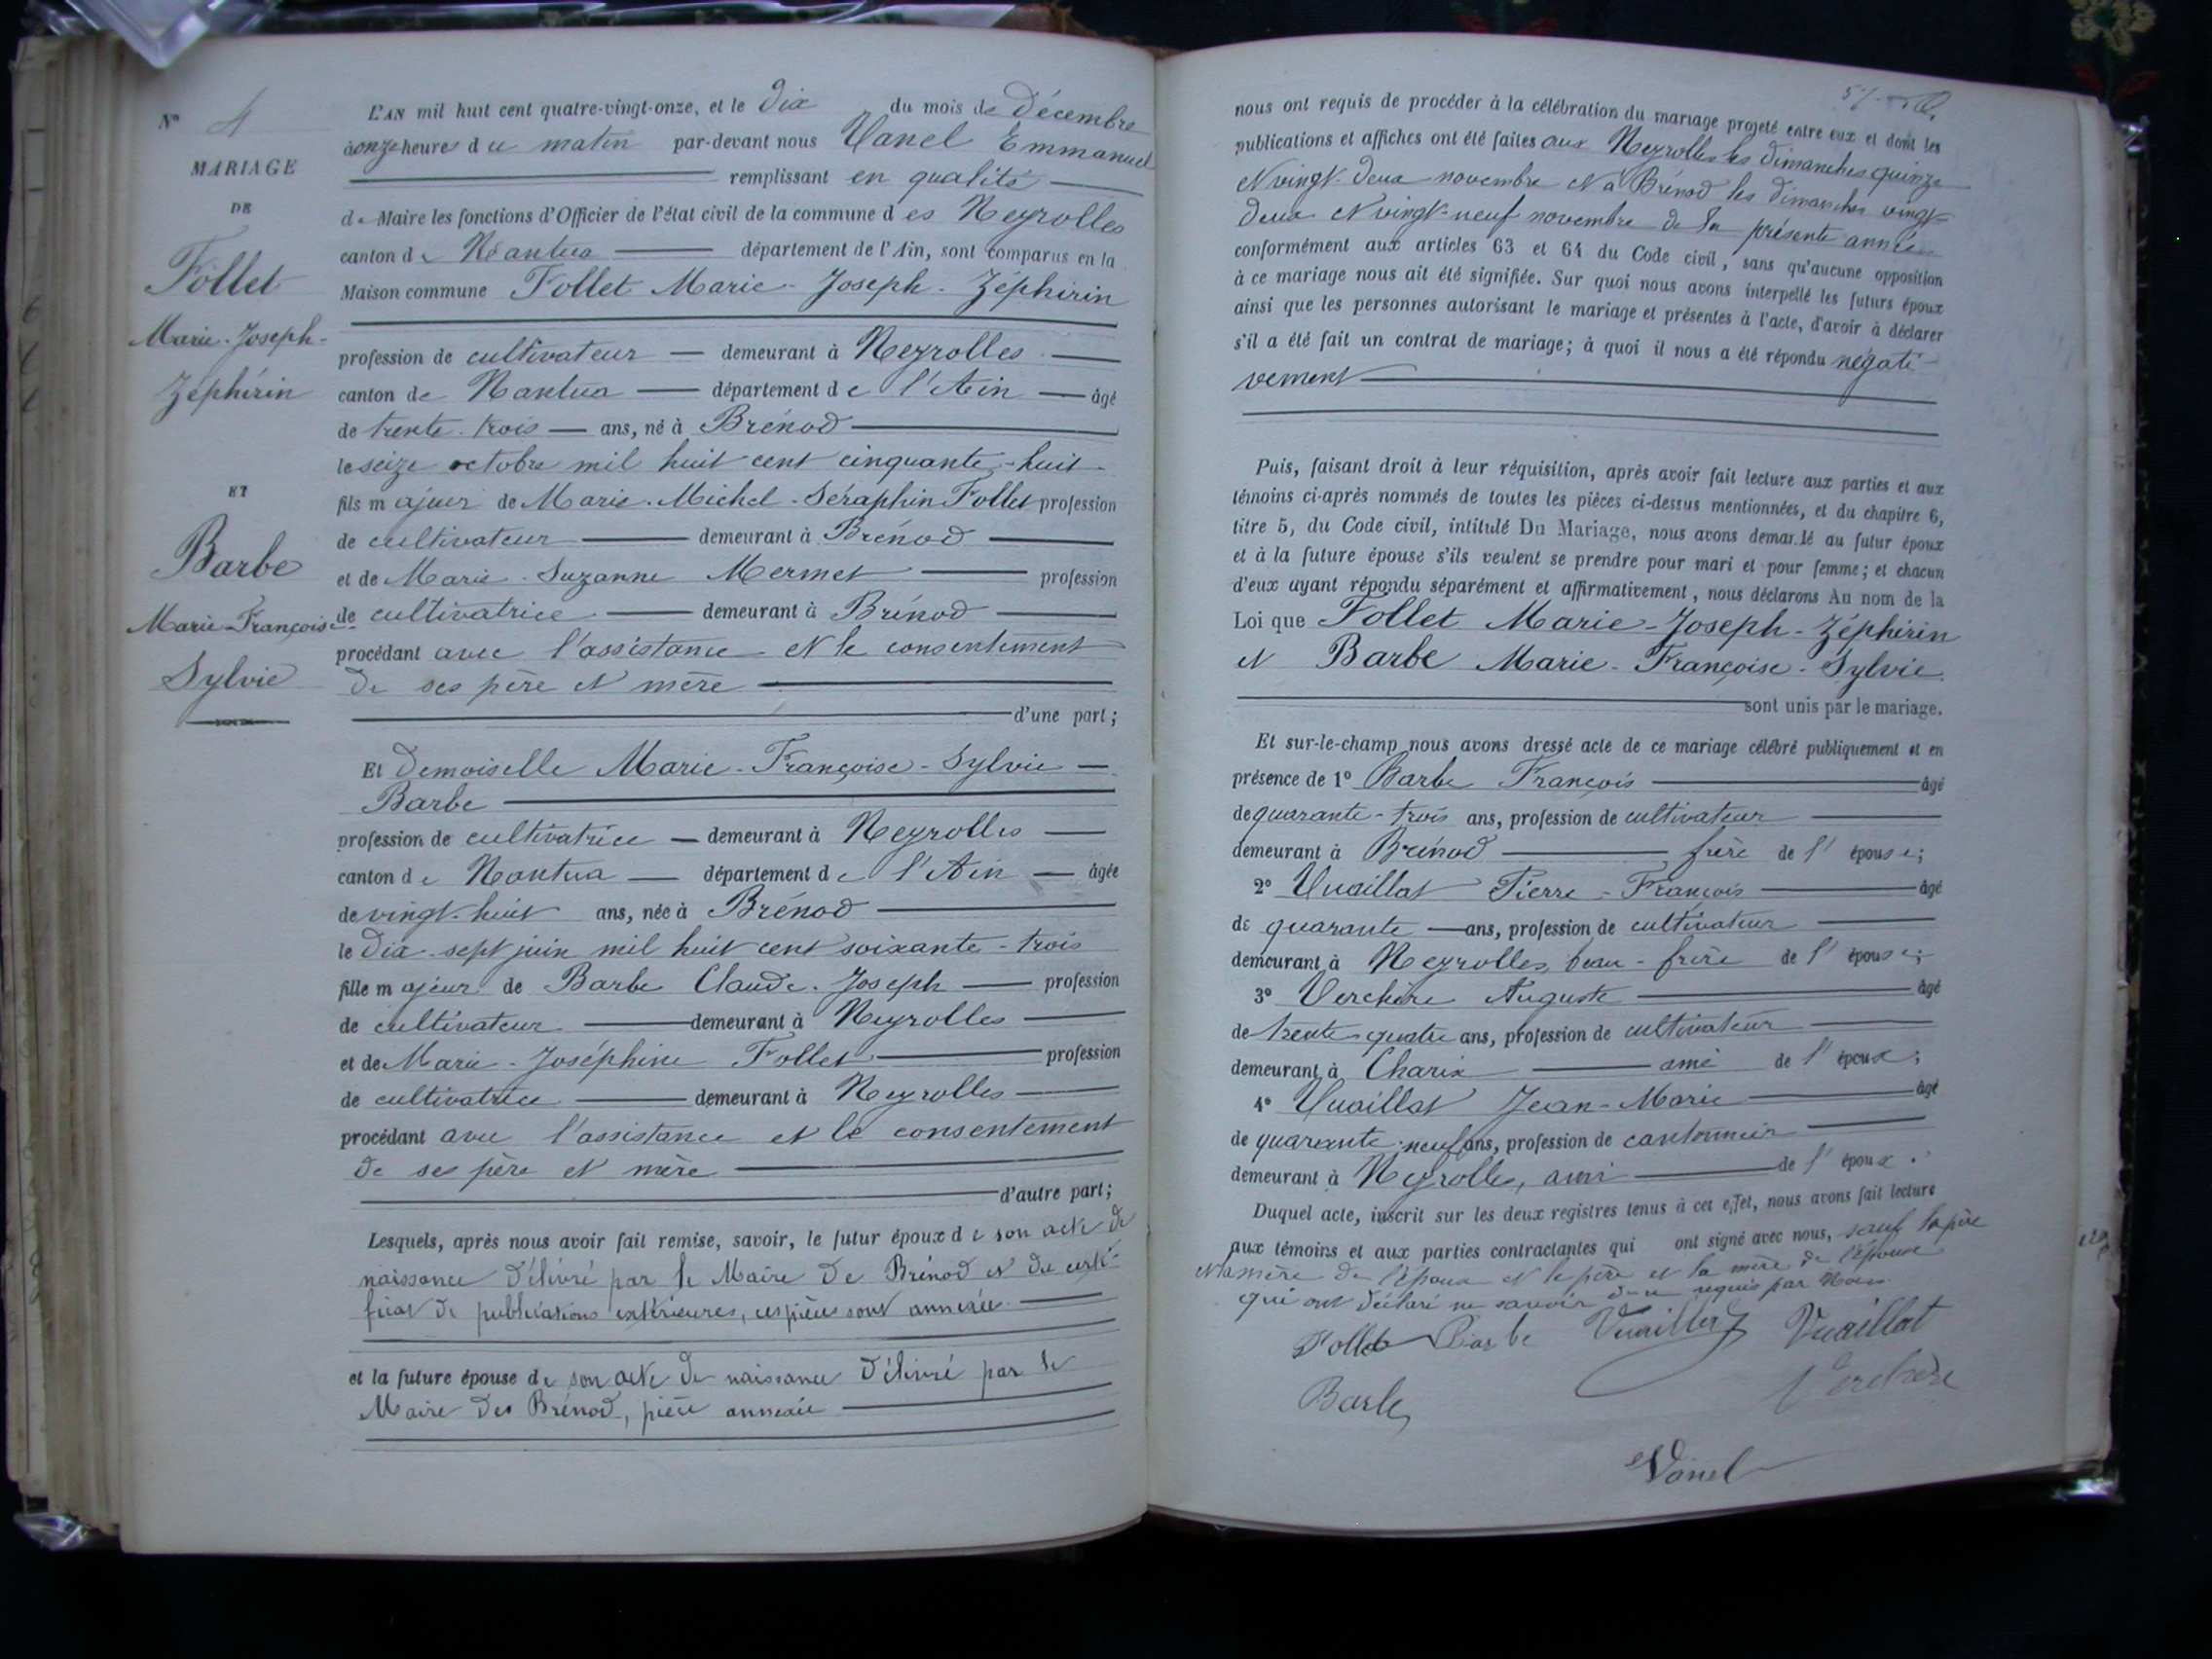 N° 4
MARIAGE
DE
Follet
Marie-Joseph-
Zéphirin
ET
Barbe
Marie-Françoise-
Sylvie
L'AN mil huit cent quatre-vingt-onze, et le dix du mois de Décembre
à onze heures du matin par-devant nous Vanel Emmanuel
remplissant en qualité
de Maire les fonctions d'Officier de l'état civil de la commune des Neyrolles
canton de Nantua département de l'Ain, sont comparus en la
Maison commune Follet Marie-Joseph-Zéphirin
profession de cultivateur demeurant à Neyrolles
canton de Nantua département de l'Ain âgé
de trente-trois ans, né à Brénod
le seize octobre mil huit cent cinquante-huit
fils majeur de Marie-Michel-Séraphin Follet profession
de cultivateur demeurant à Brénod
et de Marie-Suzanne Mermet profession
de cultivatrice demeurant à Brénod
procédant avec l'assistance et le consentement
de ses père et mère
d'une part;
Et Demoiselle Marie-Françoise-Sylvie
Barbe
profession de cultivatrice demeurant à Neyrolles
canton de Nantua département de l'Ain âgée
de vingt-huit ans, née à Brénod
le dix-sept juin mil huit cent soixante-trois
fille majeur de Barbe Claude-Joseph profession
de cultivateur demeurant à Neyrolles
et de Marie-Joséphine Follet profession
de cultivatrice demeurant à Neyrolles
procédant avec l'assistance et le consentement
de ses père et mère
d'autre part;
Lesquels, après nous avoir fait remise, savoir, le futur époux de son acte de
naissance délivré par le Maire de Brénod et du certi-
ficat de publications extérieures, ces pièces sont annexées
et la future épouse de son acte de naissance délivré par le
Maire des Brénod, pièce annexée
57
nous ont requis de procéder à la célébration du mariage projeté entre eux et dont les
publications et affiches ont été faites aux Neyrolles les dimanches quinze
et vingt-deux novembre et à Brénod les dimanches vingt-
deux et vingt-neuf novembre de la présente année
conformément aux articles 63 et 64 du Code civil, sans qu'aucune opposition
à ce mariage nous ait été signifiée. Sur quoi nous avons interpellé les futurs époux
ainsi que les personnes autorisant le mariage et présentes à l'acte, d'avoir à déclarer
s'il a été fait un contrat de mariage; à quoi il nous a été répondu négati-
vement
Puis, faisant droit à leur réquisition, après avoir fait lecture aux parties et aux
témoins ci-après nommés de toutes les pièces ci-dessus mentionnées, et du chapitre 6,
titre 5, du Code civil, intitulé Du Mariage, nous avons demandé au futur époux
et à la future épouse s'ils veulent se prendre pour mari et pour femme; et chacun
d'eux ayant répondu séparément et affirmativement, nous déclarons Au nom de la
Loi que Follet Marie-Joseph-Zéphirin
et Barbe Marie-Françoise-Sylvie
sont unis par le mariage.
Et sur-le-champ nous avons dressé acte de ce mariage célébré publiquement et en
présence de 1° Barbe François âgé
de quarante-trois ans, profession de cultivateur
demeurant à Brénod frère de l'épouse;
2° Vuaillat Pierre-François âgé
de quarante ans, profession de cultivateur
demeurant à Neyrolles, beau-frère de l'épouse;
3° Verchère Auguste âgé
de trente-quatre ans, profession de cultivateur
demeurant à Charix ami de l'époux;
4° Vuaillat Jean-Marie âgé
de quarante-neuf ans, profession de cantonnier
demeurant à Neyrolles, ami de l'époux.
Duquel acte, inscrit sur les deux registres tenus à cet effet, nous avons fait lecture
aux témoins et aux parties contractantes qui ont signé avec nous, sauf le père
et la mère de l'époux et le père et la mère de l'épouse
qui ont déclaré ne savoir de ce requis par Nous
Follet Barbe Vuaillat Vuaillat
Barbe Verchère
Vanel